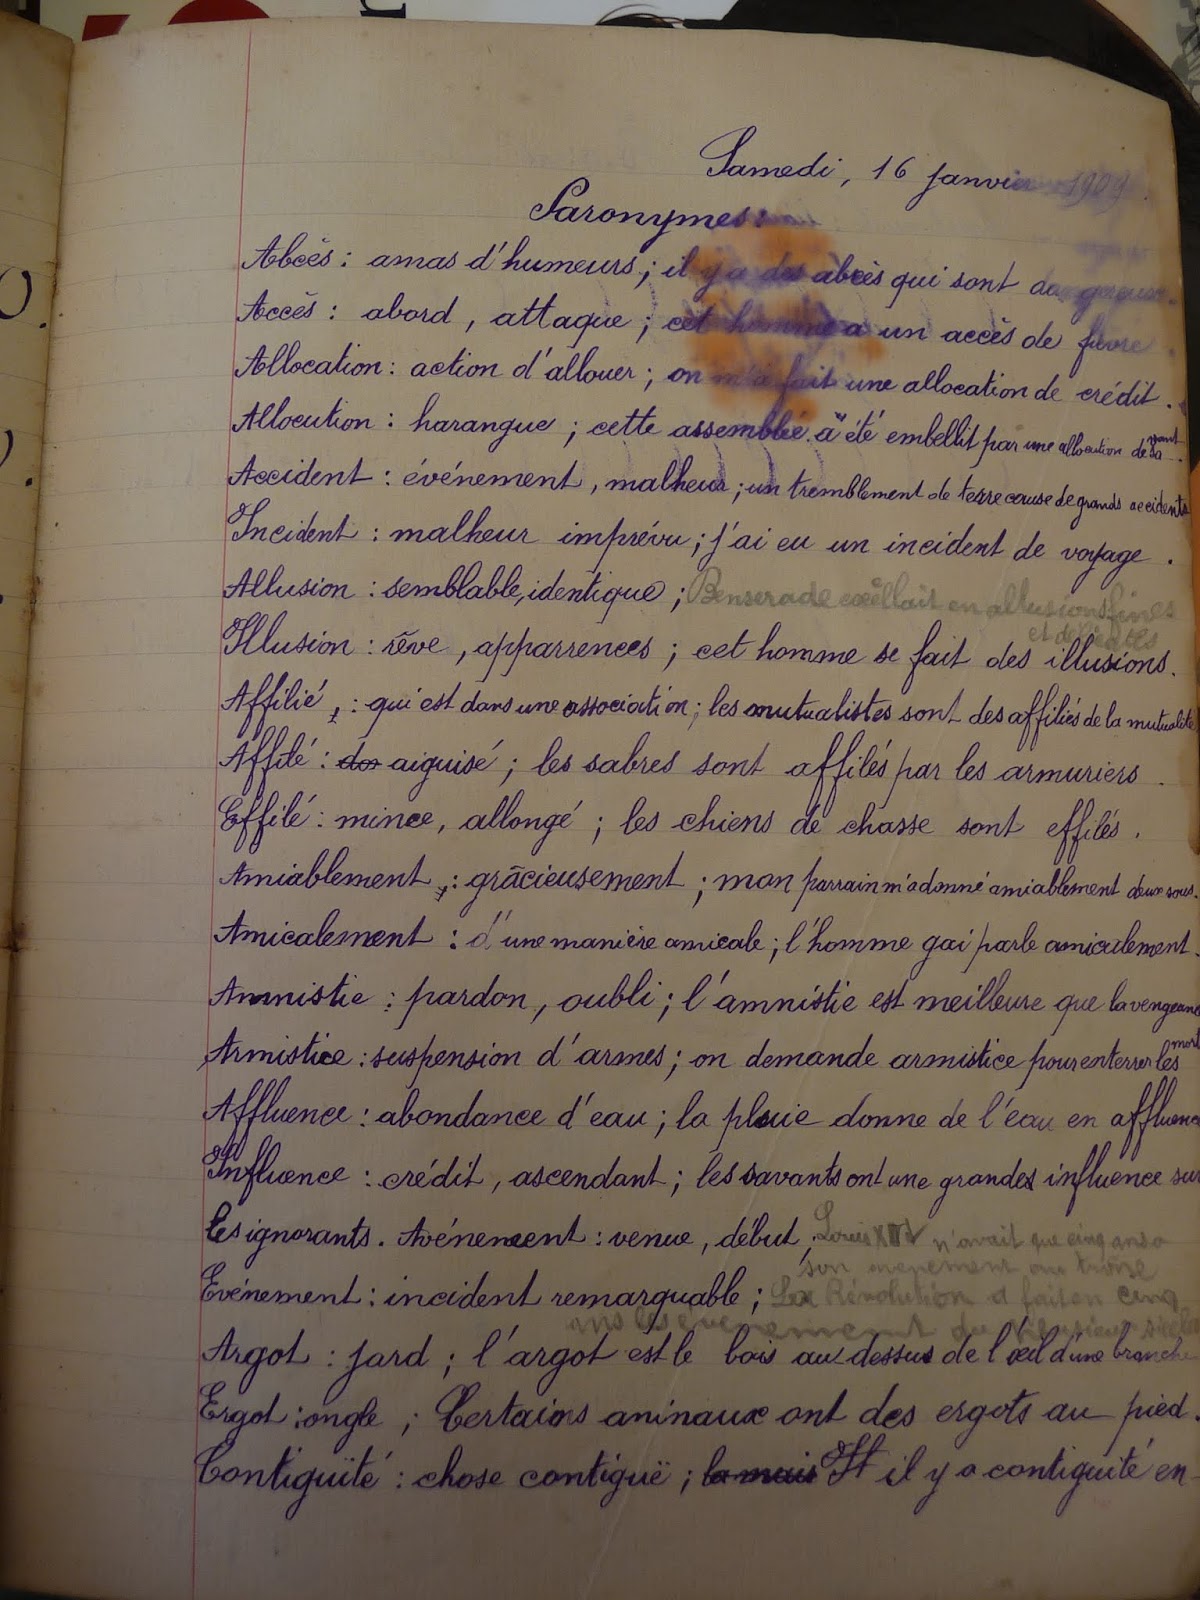 Samedi, 16 janvier 1909
Paronymes:
Abcès : amas d'humeurs ; il y a des abcès qui sont dangereux.
Accès : abord, attaque ; cet homme a un accès de fièvre.
Allocation : action d'allouer ; on m'a fait une allocation de crédit.
Allocution : harangue ; cette assemblée a été embellit par une allocution de
Accident : événement, malheur ; un tremblement de terre cause de grands accidents
Incident : malheur imprévu ; j'ai eu un incident de voyage.
Allusion : semblable, identique ; Benserade excellait en allusions fines
et
Illusion : rêve, apparrences ; cet homme se fait des illusions.
Affilié : qui est dans une association ; les mutualistes sont des affiliés de la mutualité
Affilé : dos aiguisé ; les sabres sont affilés par les armuriers.
Effilé : mince, allongé ; les chiens de chasse sont effilés.
Amiablement : grâcieusement ; mon parrain m'a donné amiablement deux sous.
Amicalement : d'une manière amicale ; l'homme gai parle amicalement.
Amnistie : pardon, oubli ; l'amnistie est meilleure que la vengeance
Armistice : suspension d'armes ; on demande armistice pour enterrer les mort
Affluence : abondance d'eau ; la pluie donne de l'eau en affluence
Influence : crédit, ascendant ; les savants ont une grandes influence sur
les ignorants. Avénement : venue, début ; Louis n'avait que cinq ans a
son avenement au trône
Evénement : incident remarquable ; La Révolution a fait en cinq
ans les évènement du
Argot : jard ; l'argot est le bois au dessus de l'œil d'une branche
Ergot : ongle ; Certains aninaux ont des ergots au pied.
Contiguïté : chose contiguë ; la mais H il y a contiguité en-